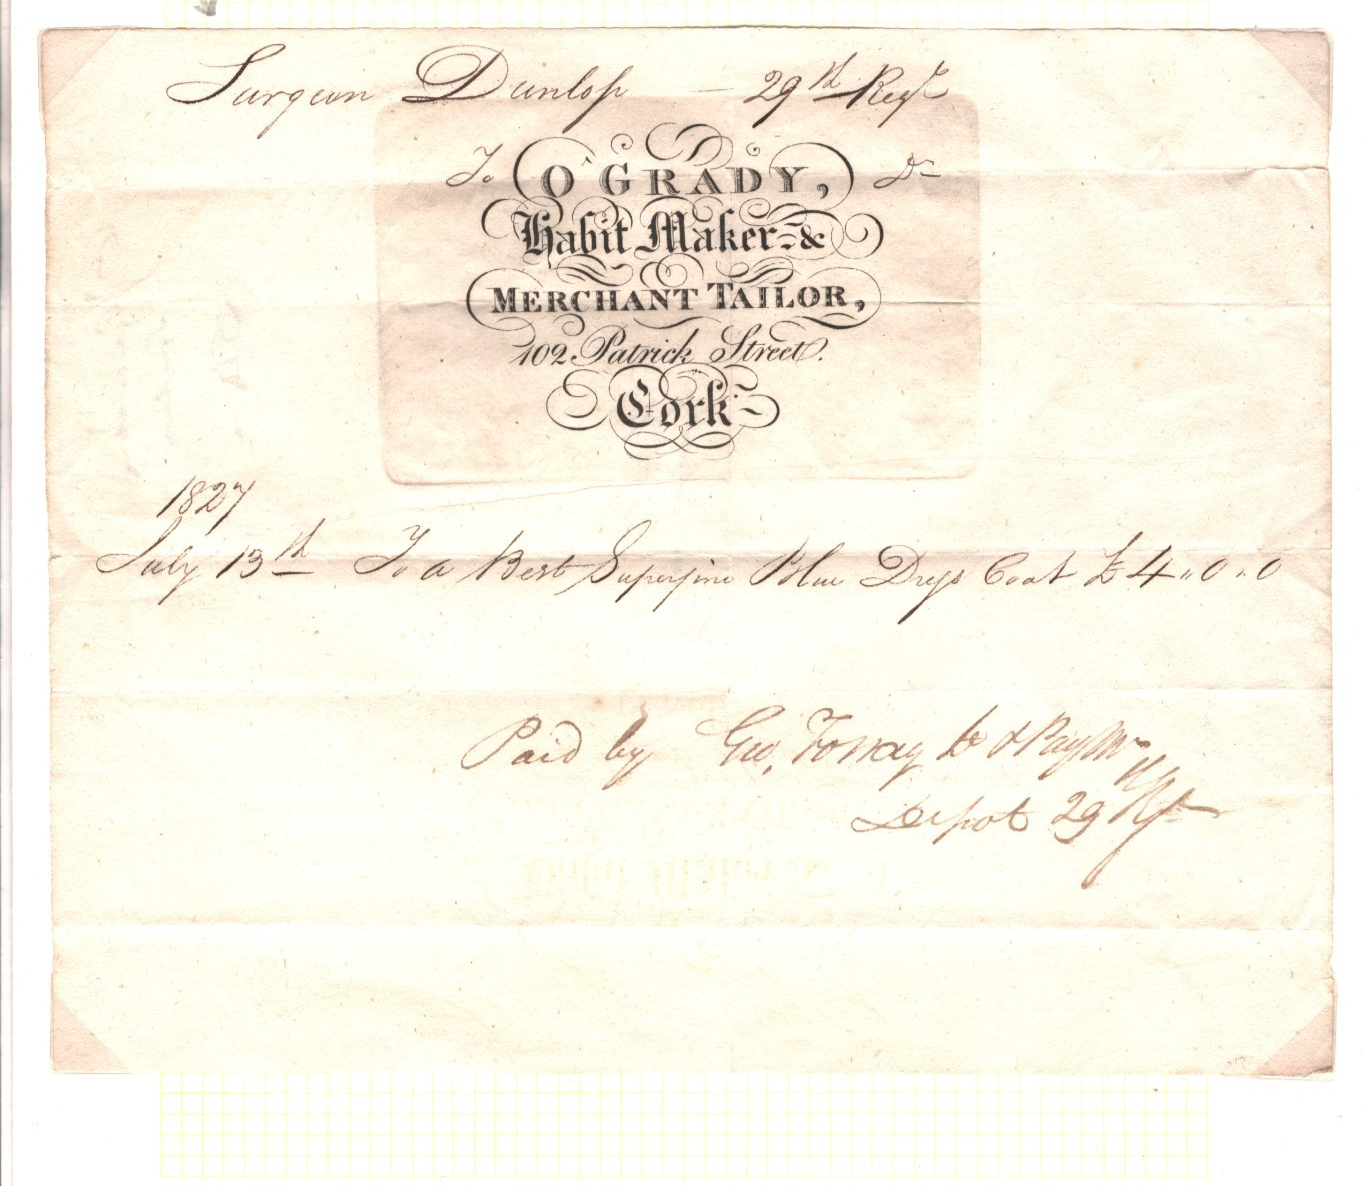 Surgeon Dunlop — 29th Regt
To O'GRADY, Dr
Habit Maker & 
MERCHANT TAILOR,
102 Patrick Street.
Cork
1827
July 13th To a Best Superfine Blue Dress Coat £4 ,, 0 ,, 0
Paid by Geo. & PayMr
Depot 29 Rgt